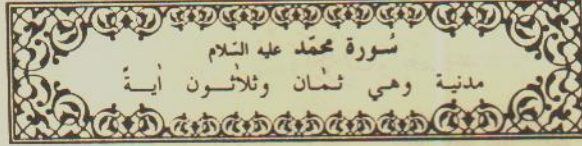 سُورة محمّد عليه السّلام
مدنية وهي ثمٰان وثلاثون أيةً